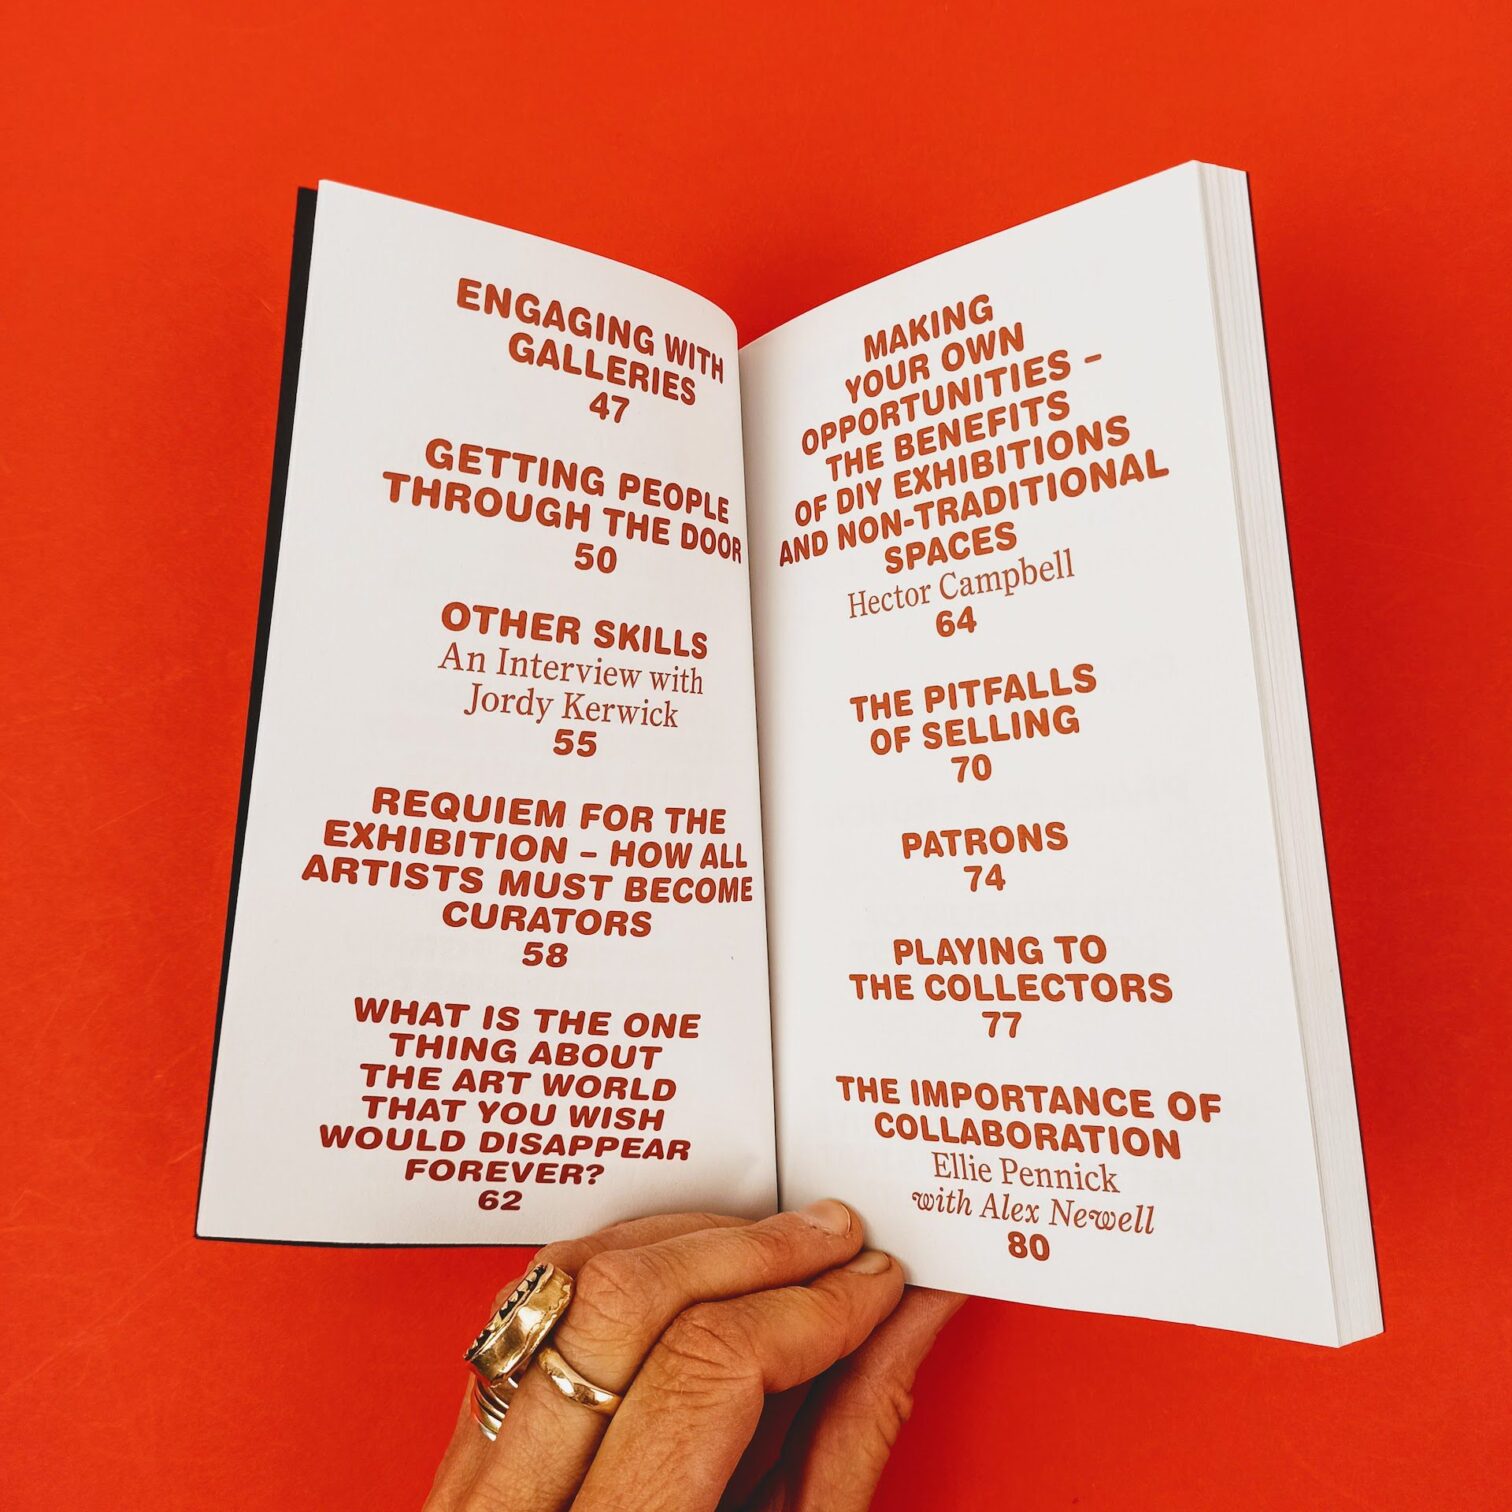 ENGAGING WITH
GALLERIES
47
GETTING PEOPLE
THROUGH THE DOOR
50
OTHER SKILLS
An Interview with
Jordy Kerwick
55
REQUIEM FOR THE
EXHIBITION – HOW ALL
ARTISTS MUST BECOME
CURATORS
58
WHAT IS THE ONE
THING ABOUT
THE ART WORLD
THAT YOU WISH
WOULD DISAPPEAR
FOREVER?
62
MAKING
YOUR OWN
OPPORTUNITIES –
THE BENEFITS
OF DIY EXHIBITIONS
AND NON-TRADITIONAL
SPACES
Hector Campbell
64
THE PITFALLS
OF SELLING
70
PATRONS
74
PLAYING TO
THE COLLECTORS
77
THE IMPORTANCE OF
COLLABORATION
Ellie Pennick
with Alex Newell
80